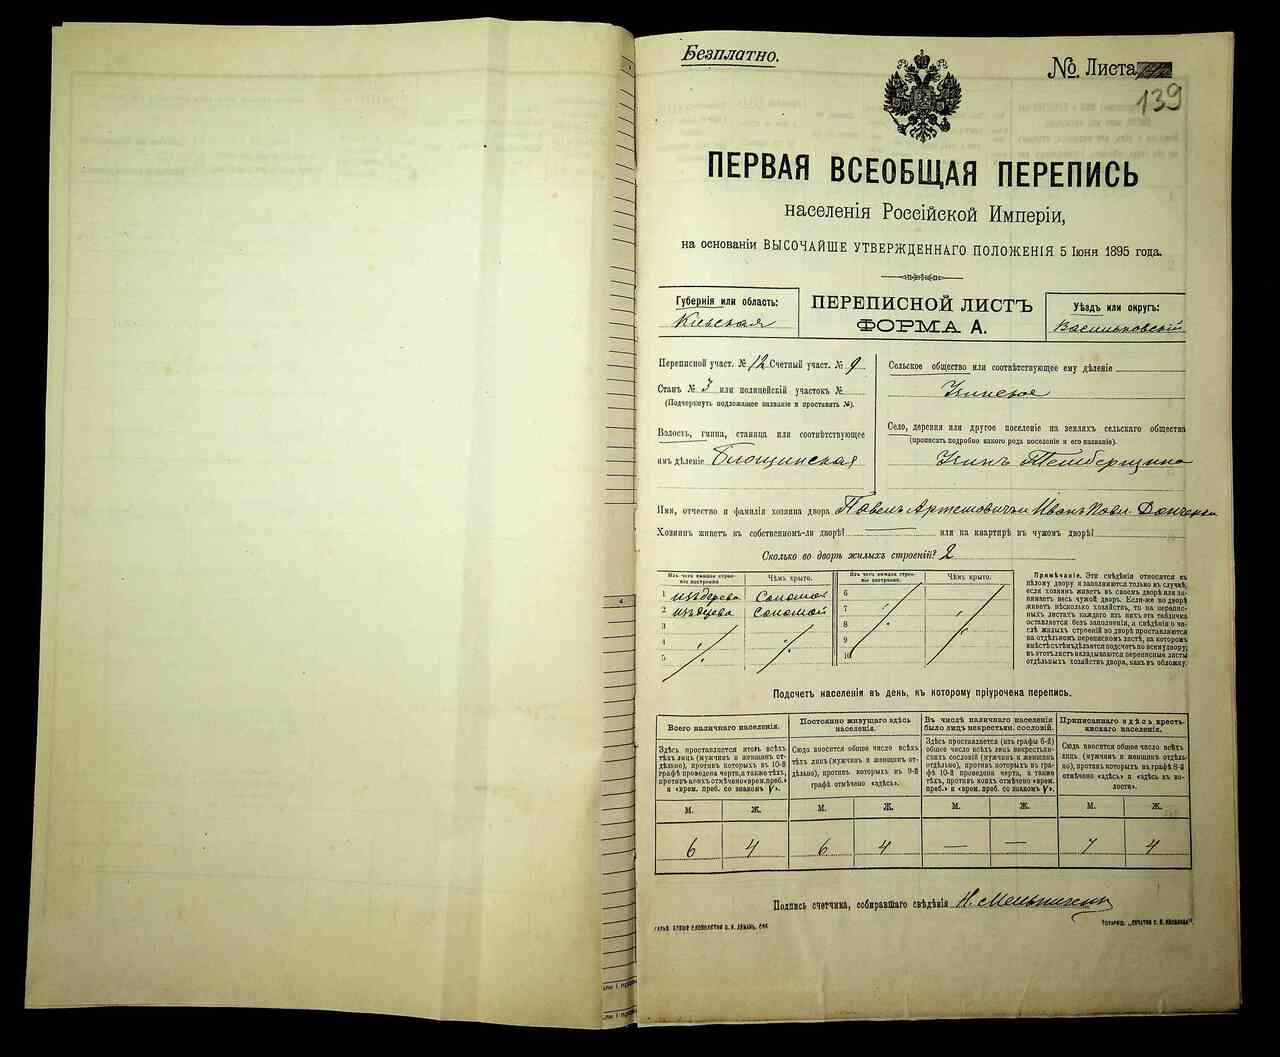 Безплатно.
№ Листа
139
ПЕРВАЯ ВСЕОБЩАЯ ПЕРЕПИСЬ
населенія Россійской Имперіи,
на основаніи ВЫСОЧАЙШЕ УТВЕРЖДЕННАГО ПОЛОЖЕНІЯ 5 Іюня 1895 года.
Губернія или область:
Кіевская
ПЕРЕПИСНОЙ ЛИСТЪ
ФОРМА А.
Уѣздъ или округъ:
Васильковскій
Переписной участ. № 12 Счетный участ. № 9
Станъ № 3 или полицейскій участокъ №
(Подчеркнуть подлежащее названіе и проставить №).
Волость, гмина, станица или соотвѣтствующее
имъ дѣленіе
Сельское общество или соотвѣтствующее ему дѣленіе
Узинское
Село, деревня или другое поселеніе на земляхъ сельскаго общества
(прописать подробно какого рода поселеніе и его названіе).
Узинъ
Имя, отчество и фамилія хозяина двора Павелъ Артемовичъ и Иванъ Павл. Донченки
Хозяинъ живетъ въ собственномъ-ли дворѣ? или на квартирѣ въ чужомъ дворѣ?
Сколько во дворѣ жилыхъ строеній? 2
Изъ чего каждое строеніе построено. Чѣмъ крыто.
1 изъ дерева Соломой
2 изъ дерева Соломой
3
4
5
Изъ чего каждое строеніе построено. Чѣмъ крыто.
6
7
8
9
10
Примѣчаніе. Эти свѣдѣнія относятся къ
цѣлому двору и заполняются только въ случаѣ,
если хозяинъ живетъ въ своемъ дворѣ или за-
нимаетъ весь чужой дворъ. Если-же во дворѣ
живетъ нѣсколько хозяйствъ, то на перепис-
ныхъ листахъ каждаго изъ нихъ эта табличка
оставляется безъ заполненія, а свѣдѣнія о чи-
слѣ жилыхъ строеній во дворѣ проставляются
на отдѣльномъ переписномъ листѣ, на которомъ
вмѣстѣ съ тѣмъ дѣлается подсчетъ по всему двору;
въ этотъ листъ вкладываются переписные листы
отдѣльныхъ хозяйствъ двора, какъ въ обложку.
Подсчетъ населенія въ день, къ которому пріурочена перепись.
Всего наличнаго населенія.
Здѣсь проставляется итогъ всѣхъ
тѣхъ лицъ (мужчинъ и женщинъ от-
дѣльно), противъ которыхъ въ 10-й
графѣ проведена черта, а также тѣхъ,
противъ коихъ отмѣчено «врем. преб.»
и «врем. преб. со знакомъ V».
Постоянно живущаго здѣсь
населенія.
Сюда вносится общее число всѣхъ
тѣхъ лицъ (мужчинъ и женщинъ от-
дѣльно), противъ которыхъ въ 9-й
графѣ отмѣчено «здѣсь».
Въ числѣ наличнаго населенія
было лицъ некрестьян. сословій.
Здѣсь проставляется (изъ графы 6-й)
общее число всѣхъ лицъ некрестьян-
скихъ сословій (мужчинъ и женщинъ
отдѣльно), противъ которыхъ въ гра-
фѣ 10-й проведена черта, а также
тѣхъ, противъ коихъ отмѣчено «врем.
преб.» и «врем. преб. со знакомъ V».
Приписаннаго здѣсь кресть-
янскаго населенія.
Сюда вносится общее число всѣхъ
лицъ (мужчинъ и женщинъ отдѣль-
но), противъ которыхъ въ графѣ 8-й
отмѣчено «здѣсь» и «здѣсь въ во-
лости».
М. Ж. М. Ж. М. Ж. М. Ж.
6 4 6 4 — — 7 4
Подпись счетчика, собиравшаго свѣдѣнія Н.